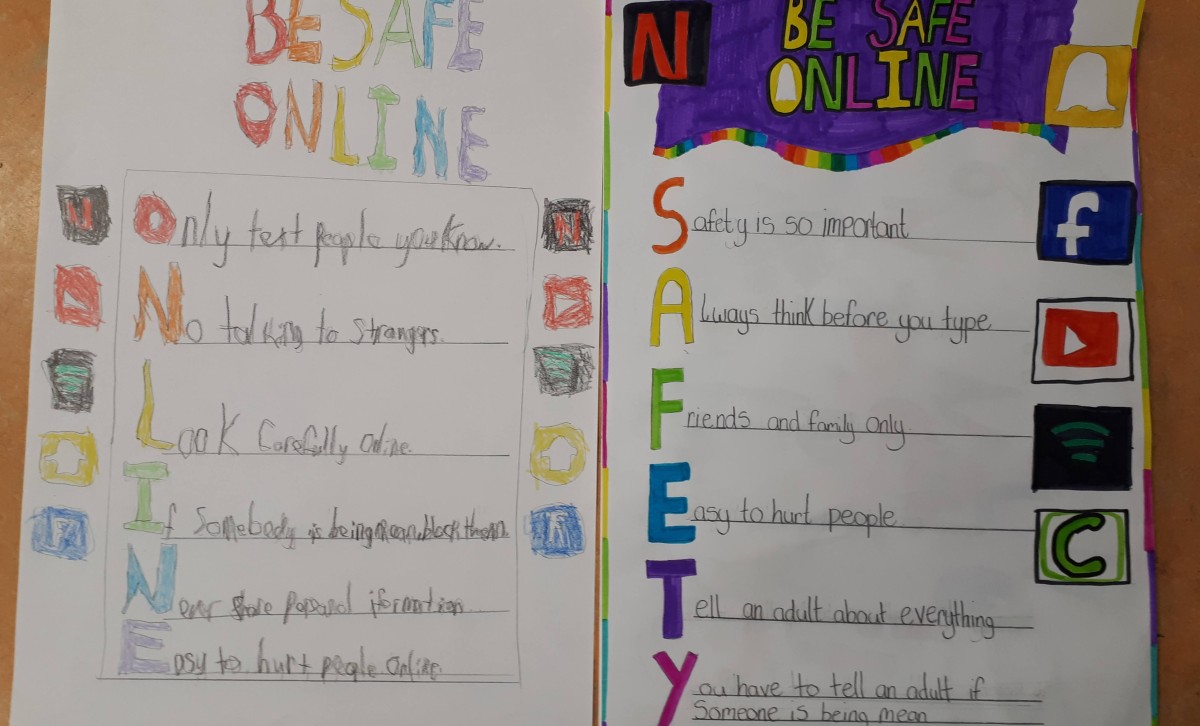 BE SAFE
ONLINE
Only text people you know.
No talking to strangers.
Look carefully online.
If somebody is being mean, block them.
Never share personal iformation
Easy to hurt people online.
N
N
F
BE SAFE
ONLINE
N
Safety is so important
f
Always think before you type
Friends and family only
Easy to hurt people
C
Tell an adult about everything
You have to tell an adult if
Someone is being mean